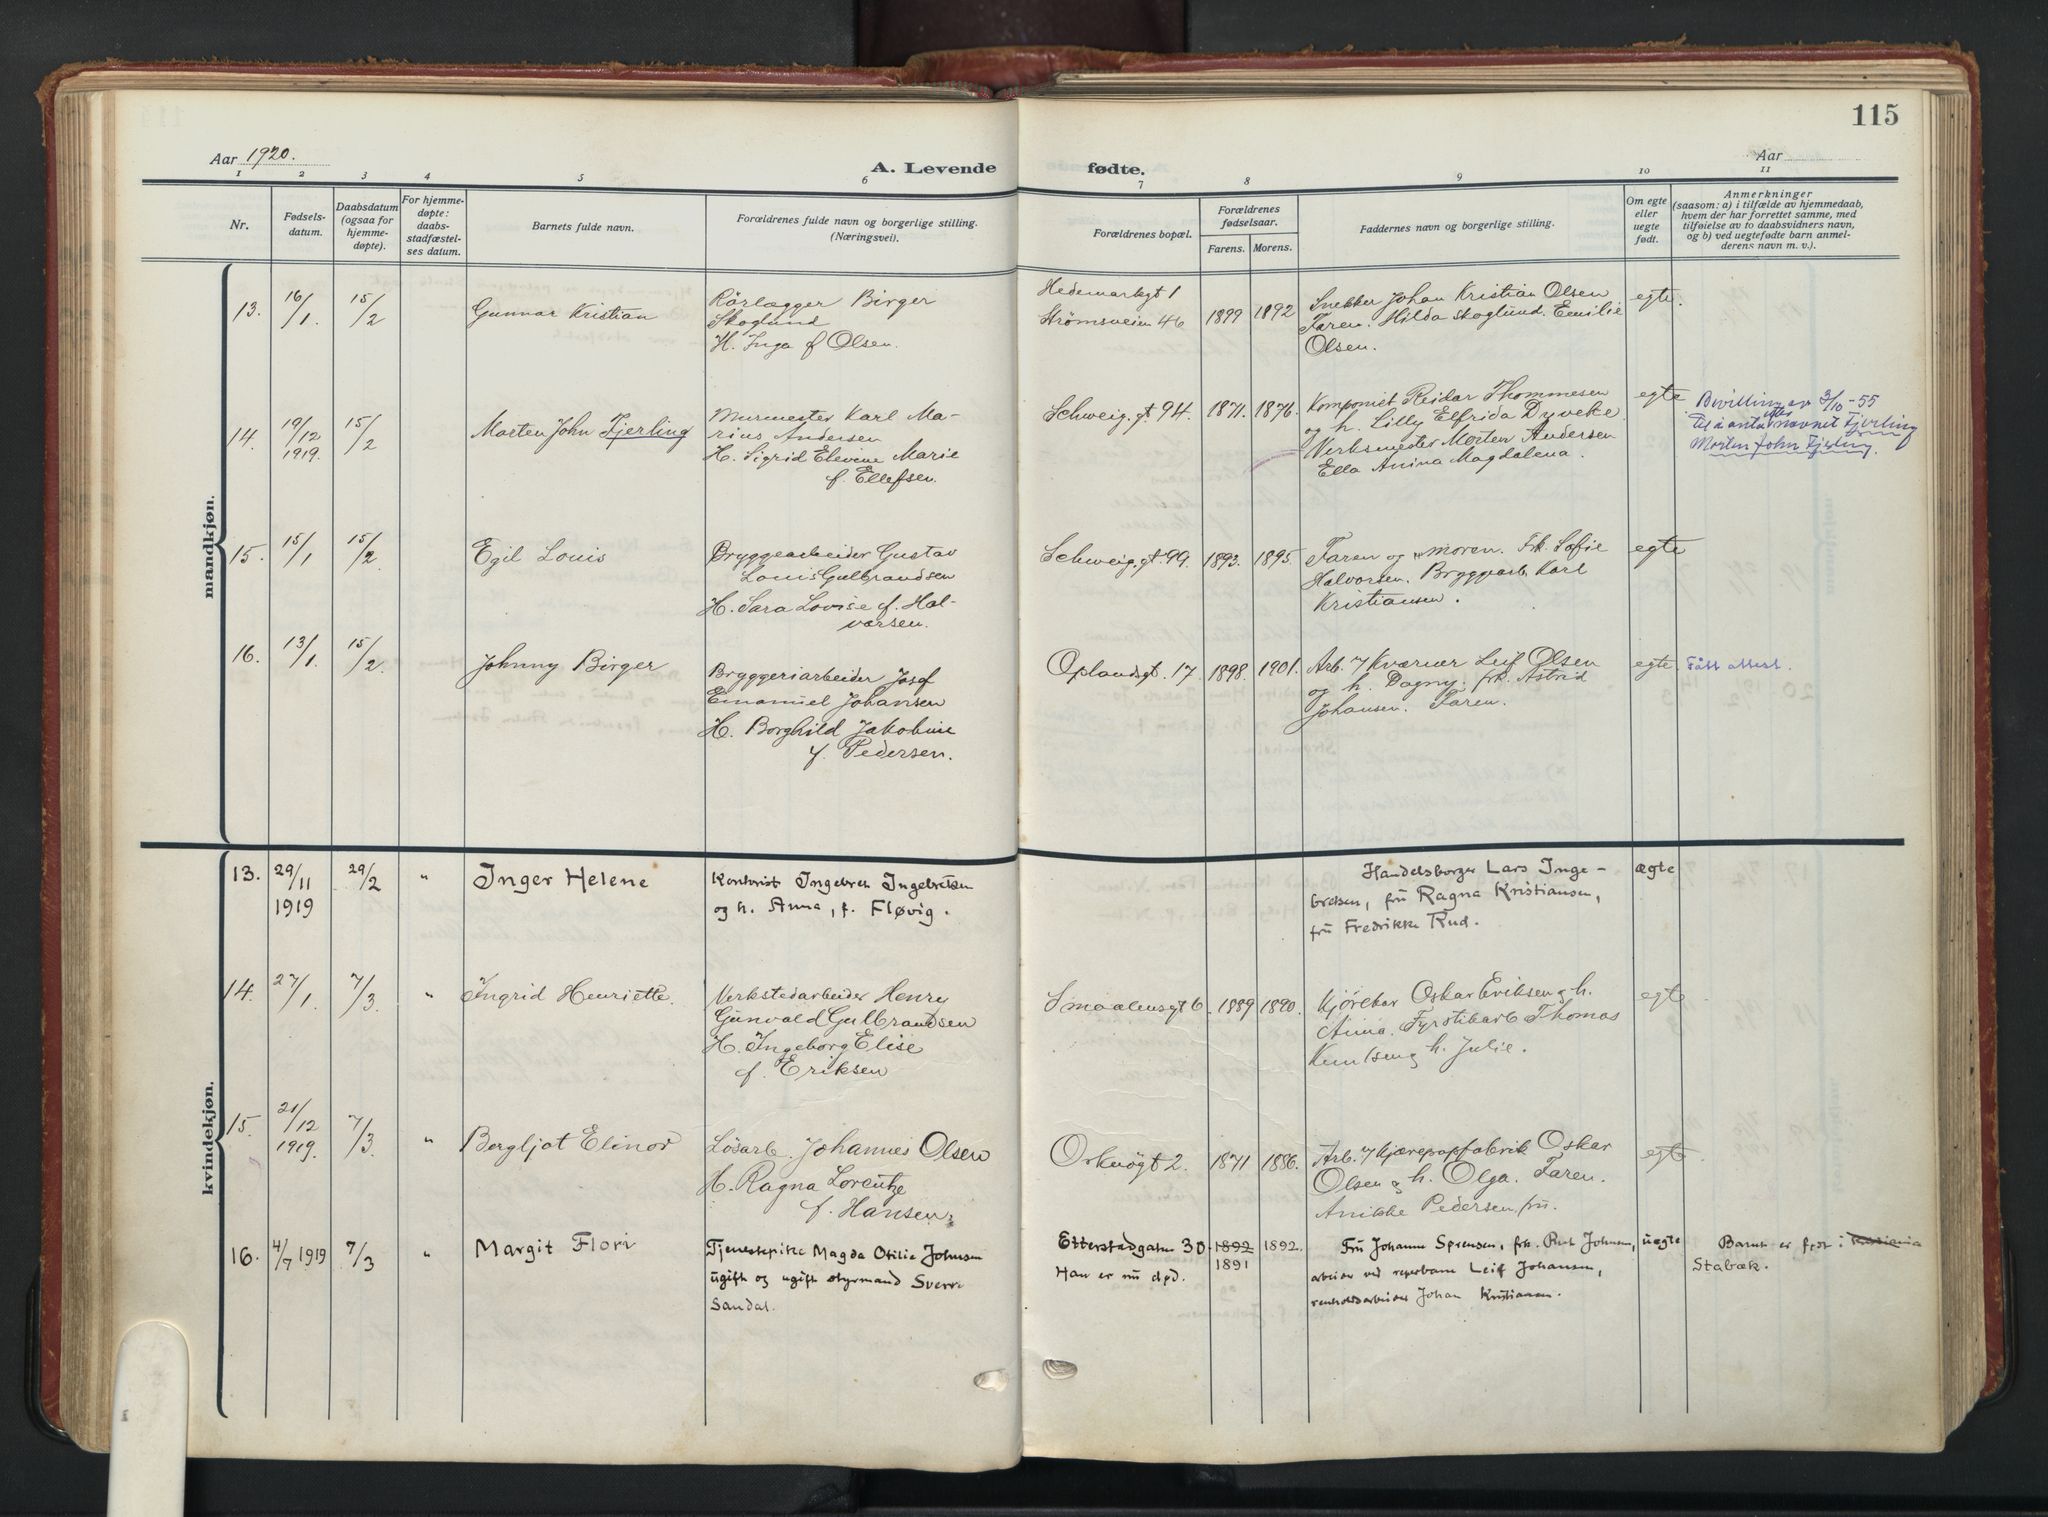 115
Aar 1920.
A. Levende fødte.
Aar
1 2 3 4 5 6 7 8 9 10 11
Nr.
Fødsels-
datum.
Daabsdatum
(ogsaa for
hjemme-
døpte).
For hjemme-
døpte:
daabs-
stadfæstel-
ses datum.
Barnets fulde navn.
Forældrenes fulde navn og borgerlige stilling.
(Næringsvei).
Forældrenes bopæl.
Forældrenes
fødselsaar.
Farens. Morens.
Faddernes navn og borgerlige stilling.
Om egte
eller
uegte
født.
Anmerkninger
(saasom: a) i tilfælde av hjemmedaab,
hvem der har forrettet samme, med
tilføielse av to daabsvidners navn,
og b) ved uegtefødte barn anmel-
derens navn m. v.).
mandkjøn.
13. 16/1. 15/2 Gunnar Kristian
Rörlægger Birger
Skoglund
H. Inga f Olsen.
Hedemarkgt 1
Strømsveien 46 1899 1892
Snekker Johan Kristian Olsen
Faren. Hilda Skoglund. Emilie
Olsen.
egte.
14. 19/12 1919. 15/2 Morten John Fjerling
Murmester Karl Ma-
rius Andersen
H. Sigrid Elevine Marie
f. Ellefsen.
Schweig.gt. 94. 1871. 1876.
Komponist Reidar Thommesen
og h. Lilly Elfrida Dyveke
Verksmester Morten Andersen
Ella Anina Magdalena.
egte
Bevilling av 3/10-55
til å anta etter navnet Fjerling
Morten John Fjerling.
15. 15/1 15/2. Egil Louis
Bryggearbeider Gustav
Louis Gulbrandsen
H. Sara Lovise f. Hal-
vorsen.
Schweig.gt. 99. 1893. 1895.
Faren og moren. Frk. Sofie
Halvorsen. Bryggearb. Karl
Kristiansen.
egte
16. 13/1. 15/2. Johnny Birger
Bryggeriarbeider Josef
Emanuel Johansen
H. Borghild Jakobine
f Pedersen.
Oplandsgt. 17. 1898. 1901.
Arb. v/ Kværner Leif Olsen
og h. Dagny. frk. Astrid
Johansen. Faren.
egte. Fått attest.
kvindekjøn.
13. 29/11 1919 29/2 " Inger Helene
Kontorist Ingebret Ingebretsen
og h. Anna, f. Fløvig.
Handelsborger Lars Inge-
bretsen, fru Ragna Kristiansen,
fru Fredrikke Rud.
ægte
14. 27/1. 7/3 " Ingrid Henriette.
Verkstedarbeider Henry
Gunvald Gulbrandsen
H. Ingeborg Elise
f. Eriksen
Smaalensgt 6. 1889 1890.
Kjørekar Oskar Eriksen og h.
Anna. Fyrstikarb Thomas
Knutsen og h. Julie.
egte
15. 21/12 1919. 7/3 " Bergljot Elinor
Løsarb. Johannes Olsen
H. Ragna Lorentze
f. Hansen.
Orknögt 2. 1871 1886.
Arb. v/ kjærepapfabrik Oskar
Olsen og h. Olga. Faren.
Anikke Pedersen fru.
egte.
16. 4/7 1919 7/3 " Margit Flori
Tjenestepike Magda Otilie Johnsen
ugift og ugift styrmand Sverre
Sandal.
Etterstadgaten 30 1892 1892.
1891
Han er nu død.
Fru Johanne Sørensen, frk. Rut Johnsen,
arbeider ved reperbane Leif Johansen,
renholdsarbeider Johan Kristiansen.
uegte
Barnet er født i Kristiania
Stabæk.